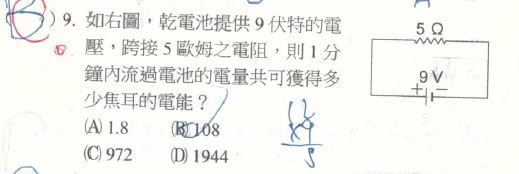 (B)9. 如右圖，乾電池提供9伏特的電
壓，跨接5歐姆之電阻，則1分
鐘內流過電池的電量共可獲得多
少焦耳的電能？
(A) 1.8 (B) 108
(C) 972 (D) 1944
5 Ω
9 V
+ −
12
x9
8